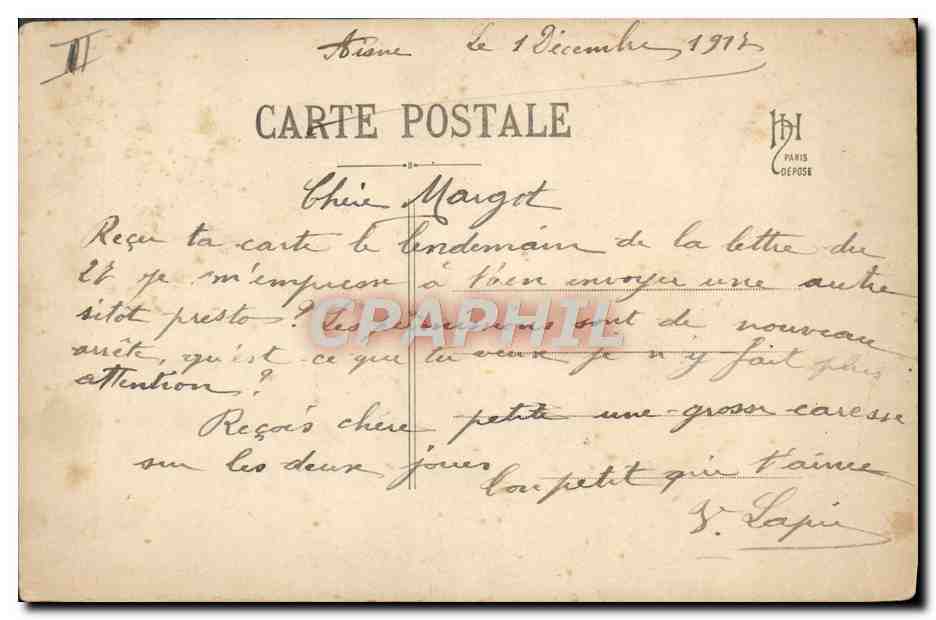 II
Aisne Le 1 Décembre 1917
CARTE POSTALE
PARIS
DEPOSE
Chère Margot
Reçu ta carte le lendemain de la lettre du
27 je m'empresse à t'en envoyer une autre
sitot presto? Les permissions sont de nouveau
CPAPHIL
arrête, qu'est ce que tu veux je n'y fait plus
attention?
Reçois chère petite une grosse caresse
sur les deux joues
ton petit qui t'aime
V. Lapie